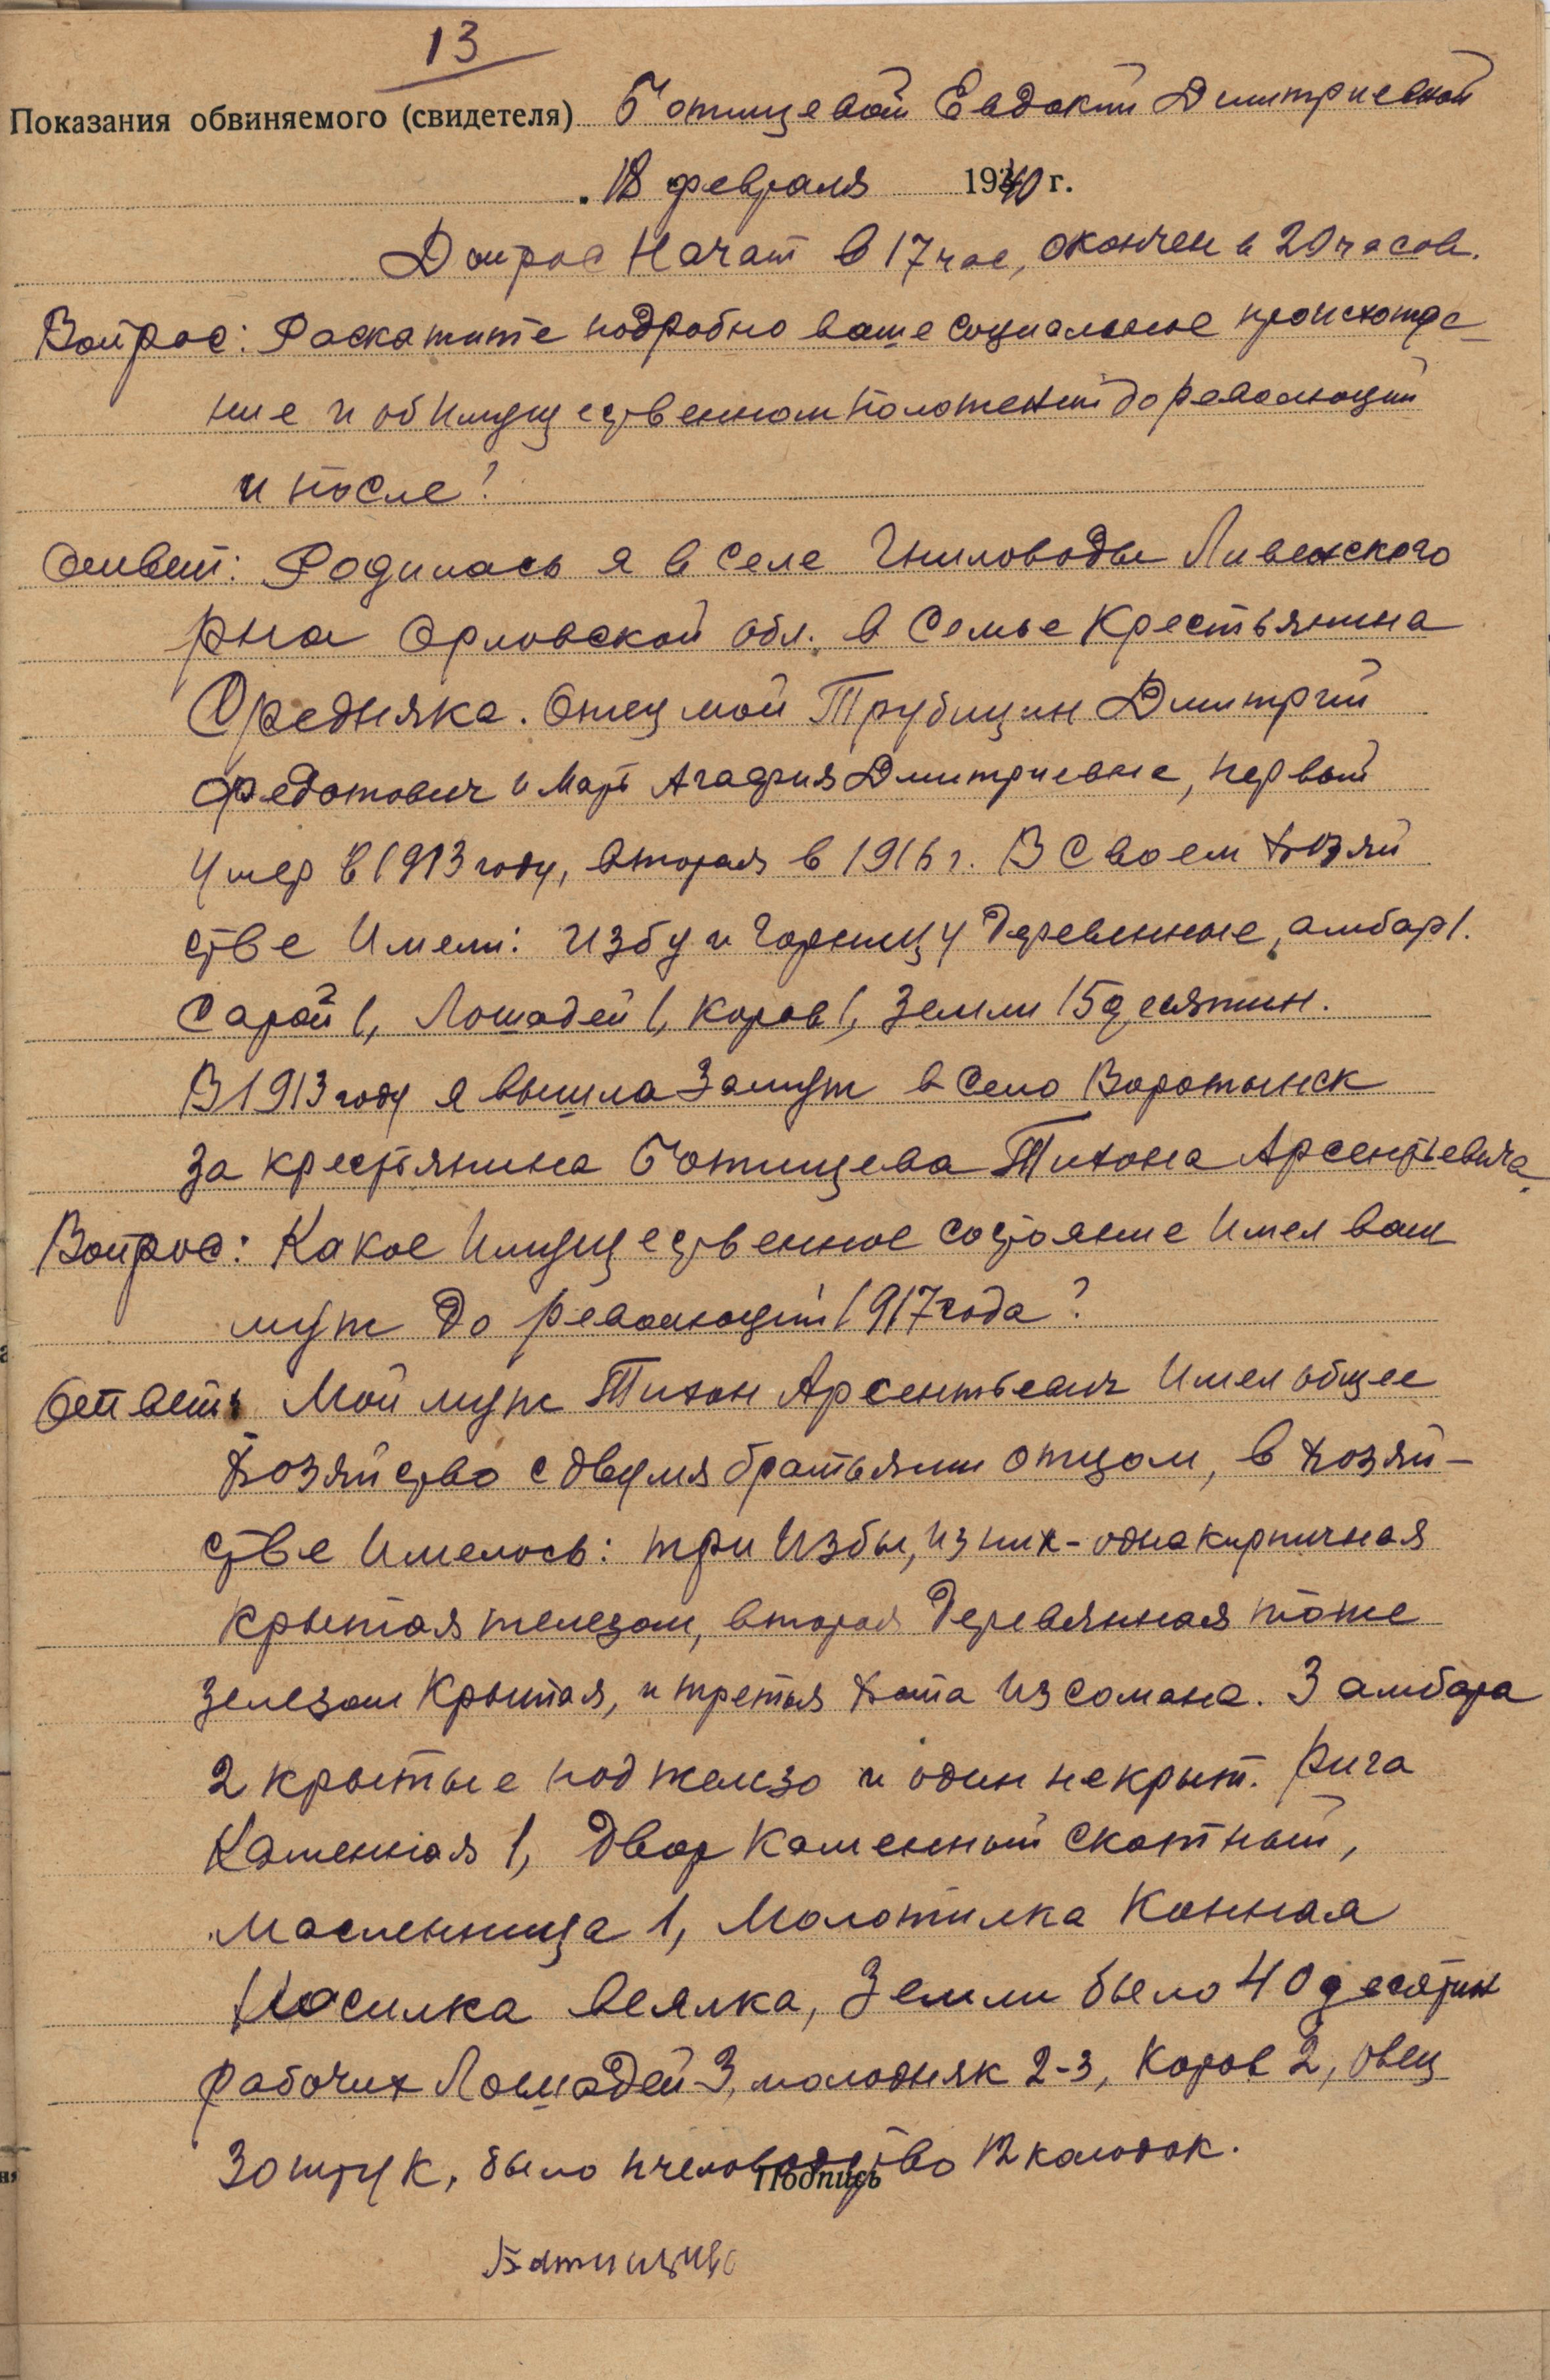 13
Показания обвиняемого (свидетеля) Ботищевой Евдокии Дмитриевной
18 февраля 1940 г.
Допрос начат в 17 час, окончен в 20 часов.
Вопрос: Раскажите подробно ваше социальное происхожде-
ние и об имущественном положении до революции
и после?
Ответ: Родилась я в селе Гниловоды Ливенского
рна Орловской обл. в семье крестьянина
Средняка. Отец мой Трубицин Дмитрий
Федотович и мать Агафия Дмитриевна, первый
умер в 1913 году, вторая в 1916 г. В своем хозяй
стве имели: избу и горницу деревенные, амбар 1.
Сарай 1, Лошадей 1, коров 1, земли 15 десятин.
В 1913 году я вышла замуж в село Воротынск
за крестьянина Ботищева Тихона Арсентьевича.
Вопрос: Какое имущественное состояние имел ваш
муж до революции 1917 года?
Ответ: Мой муж Тихон Арсентьевич имел общее
хозяйство с двумя братьями отцом, в хозяй-
стве имелось: три избы, из них - одна кирпичная
крытая железом, вторая деревянная тоже
зелезом крытая, и третья хата из самана. 3 амбара
2 крытые под железо и один некрыт. Рига
каменная 1, двор каменный скотный,
масленница 1, молотилка конная
Косилка веялка, земли было 40 десятин
рабочих Лошадей 3, молодняк 2-3, коров 2, овец
30 штук, было пчеловодство 12 колодок.
Подпись
Батищива